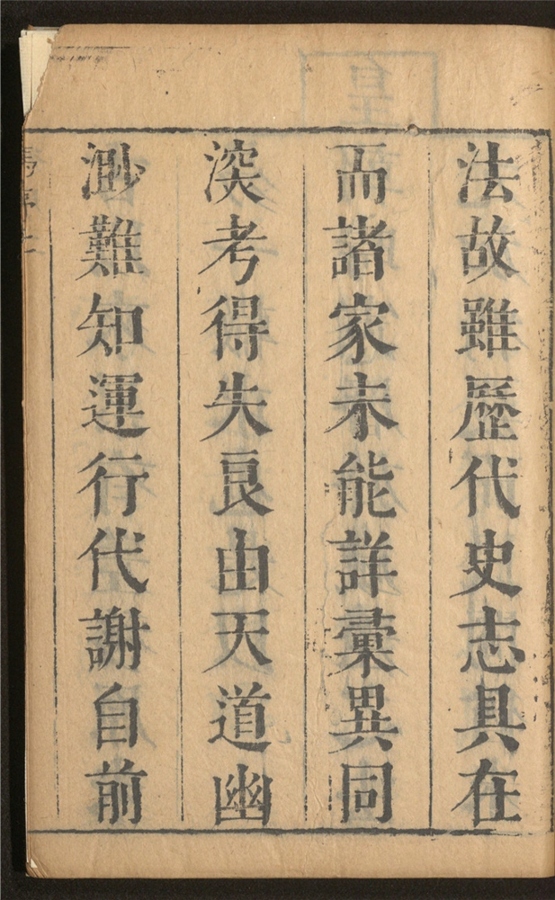 法故雖歷代史志具在
而諸家未能詳彙異同
深考得失良由天道幽
渺難知運行代謝自前